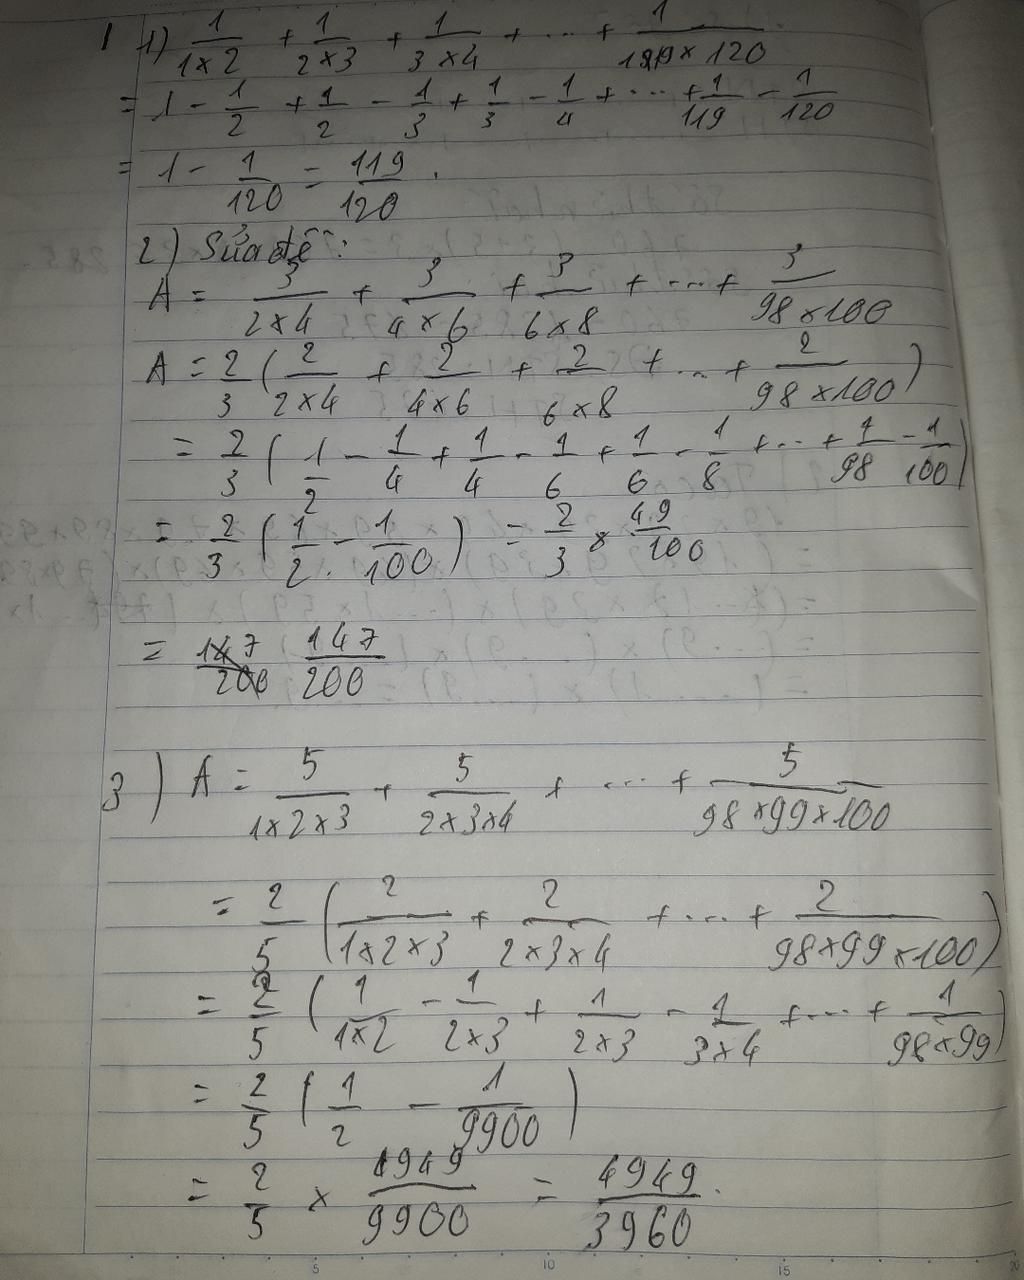 1 1) 1/(1×2) + 1/(2×3) + 1/(3×4) + ... + 1/(119×120)
= 1 - 1/2 + 1/2 - 1/3 + 1/3 - 1/4 + ... + 1/119 - 1/120
= 1 - 1/120 = 119/120.
2) Sửa đề:
A = 3/(2×4) + 3/(4×6) + 3/(6×8) + ... + 3/(98×100)
A = 2/3 (2/(2×4) + 2/(4×6) + 2/(6×8) + ... + 2/(98×100))
= 2/3 (1/2 - 1/4 + 1/4 - 1/6 + 1/6 - 1/8 + ... + 1/98 - 1/100)
= 2/3 (1/2 - 1/100) = 2/3 × 49/100
= 147/200 147/200
3) A = 5/(1×2×3) + 5/(2×3×4) + ... + 5/(98×99×100)
= 2/5 (2/(1×2×3) + 2/(2×3×4) + ... + 2/(98×99×100))
= 2/5 (1/(1×2) - 1/(2×3) + 1/(2×3) - 1/(3×4) + ... + 1/(98×99))
= 2/5 (1/2 - 1/9900)
= 2/5 × 4949/9900 = 4949/3960.
5 10 15 20